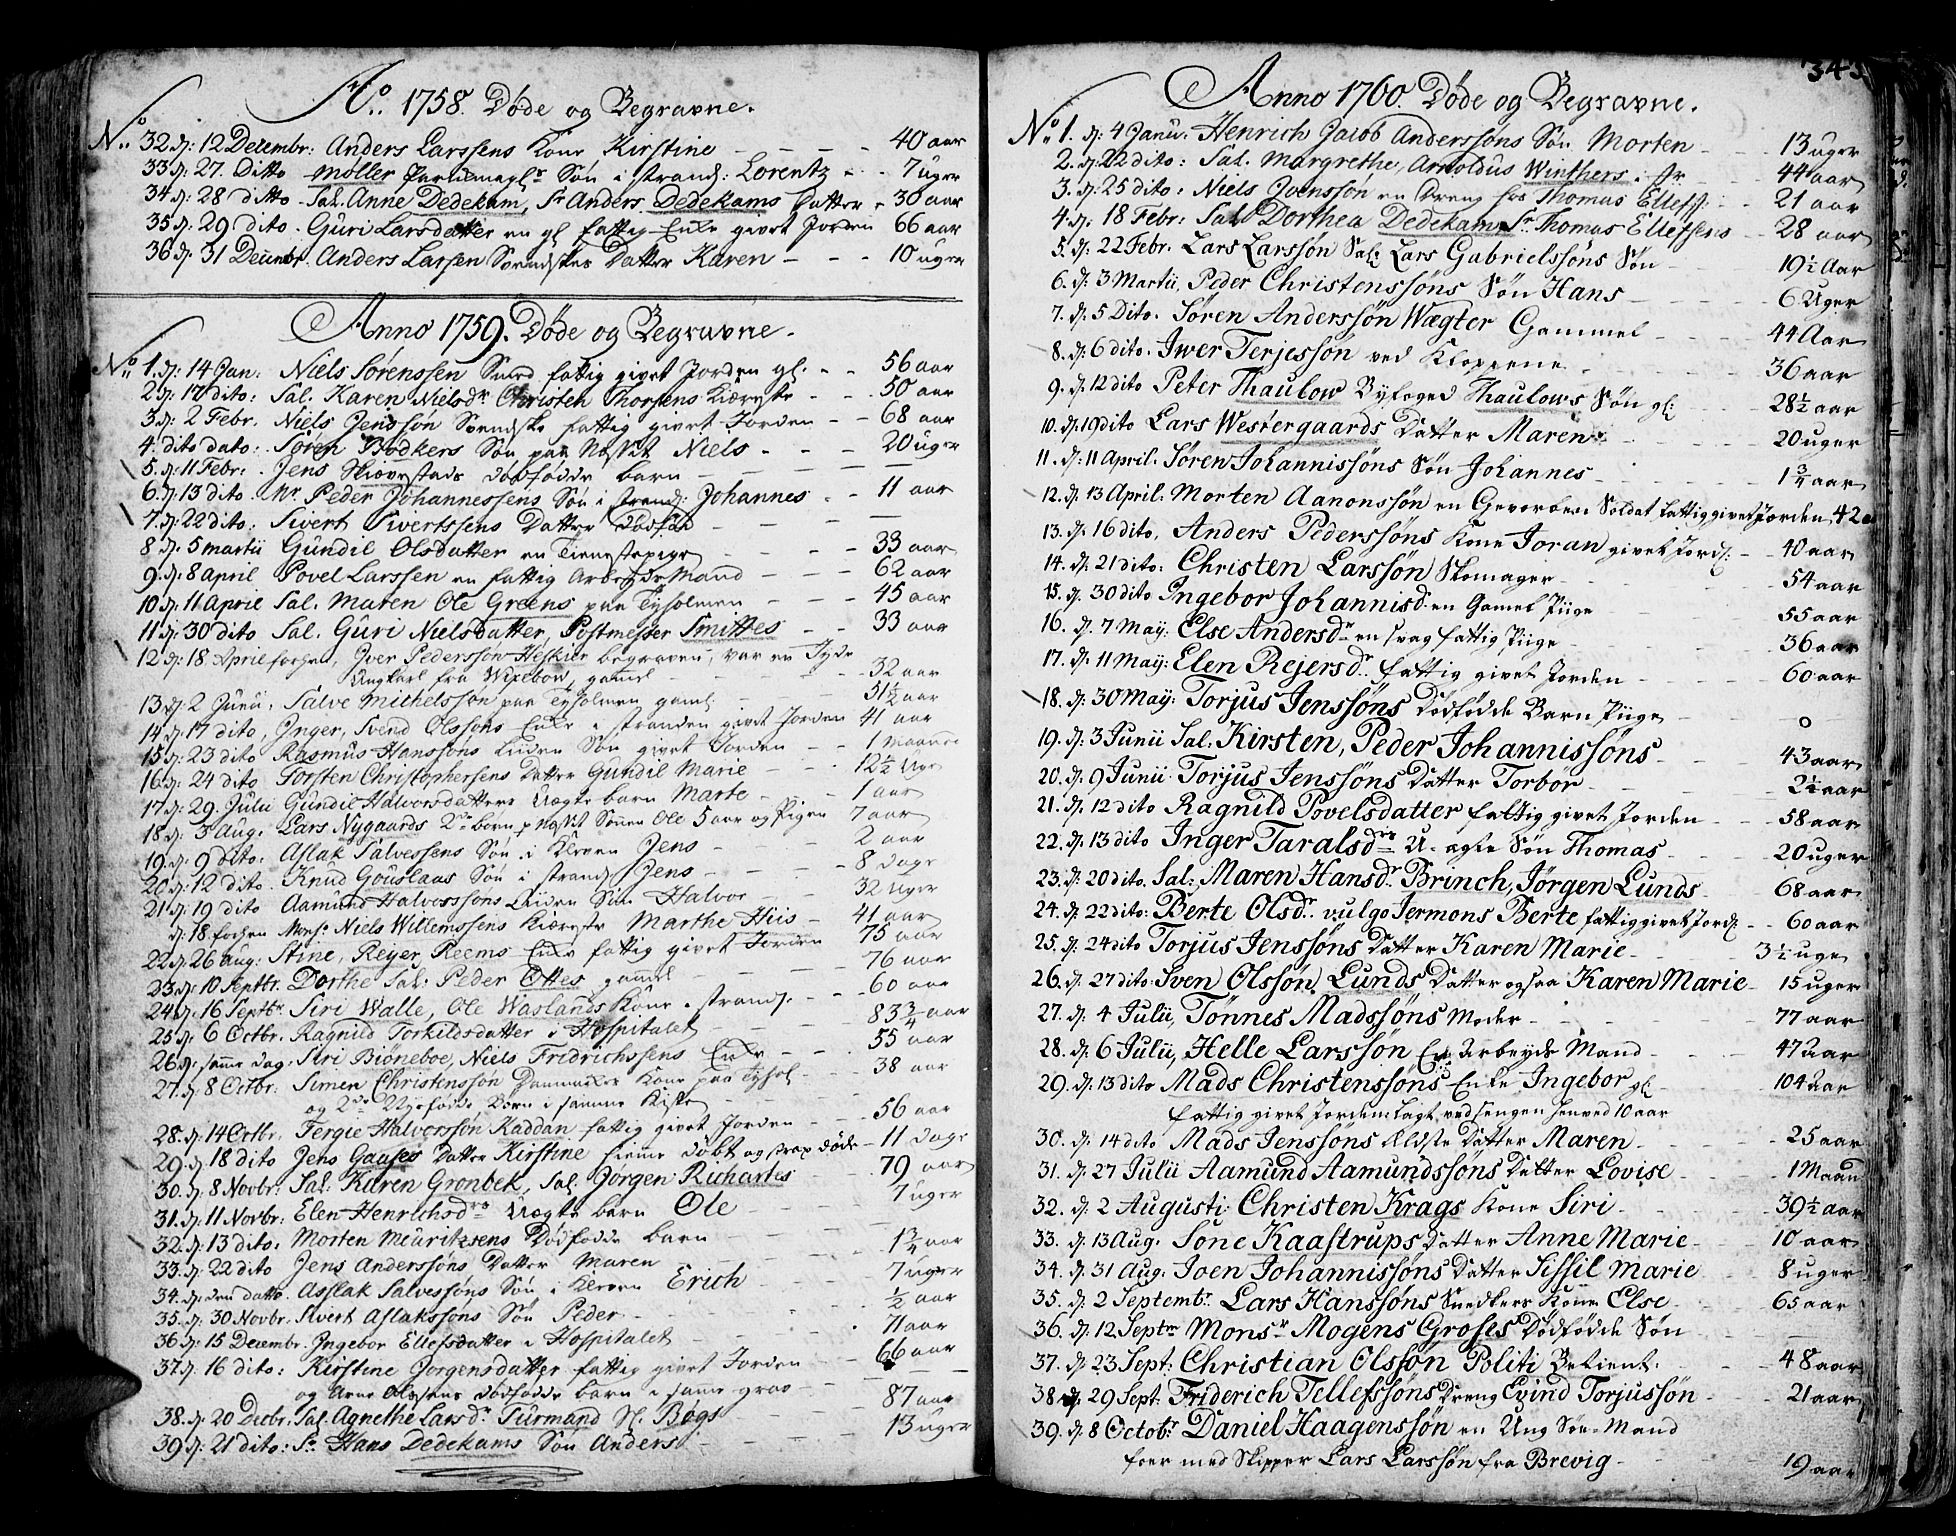 Ao. 1758. Døde og Begravne.
No. 32. d: 12 Decembr: Anders Larssens Kone Kirstine 40 aar
33 d. 27. Ditto Møller Søn i Strand: Lorentz 7 uger
34 d: 28 ditto Sal. Anne Dedekam, Sr Anders Dedekams Datter 30 aar
35 d: 29 dito. Guri Larsdatter en gl fattig Enke givet Jorden 66 aar
36 d. 31 Decembr. Anders Larsen Svendskes Datter Karen 10 uger
Anno 1759. Døde og Begravne.
No. 1. d: 14 Jan: Niels Sørenssen Smed fattig givet Jorden gl. 56 aar
2 d: 17 dito: Sal. Karen Nielsdr Christen Thorsens Kiæreste 50 aar
3 d: 2 Febr. Niels Jenssøn Svendske fattig givet Jorden 68 aar
4. dito dato: Søren Bødkers Søn paa Næsset Niels 20 uger
5. d: 11 Febr: Jens Skiævestads dødfødde barn
6. d: 13 dito. Mr. Peder Johannessens Søn i Strand: Johannes 11 aar
7. d: 22 dito: Sivert Sivertssens Datter Dødfød
8 d. 5 martii Gundil Olsdatter en Tienestepige 33 aar
9. d: 8 april Povel Larssen en fattig Arbeyds Mand 62 aar
10. d: 11 April Sal. Maren Ole Greens paa Tyholmen 45 aar
11 d: 30 dito Sal. Guri Nielsdatter, Postmester Smittes 33 aar
12 d: 18 April forhen, Iver Pederssøn Heskier begraven, var en Jyde
Ungkarl fra Wixebow, gamel 32 aar
13. d: 2 Junii, Salve Michelssøn paa Tyholmen gaml: 51½ aar
14 d: 17 dito, Inger, Svend Olssøns Enke i Stranden givet Jorden 41 aar
15. d: 23 dito Rasmus Hanssøns liden Søn givet Jorden 1 maaned
16. d: 24 dito Torsten Christophersens Datter Gundil Marie 12½ Uge
17 d: 29. Julii Gundil Halvorsdatters Uægte barn Marte 1 aar
18 d: 3 Aug. Lars Nygaards 2de børn p Næsset Sønnen Ole 5 aar og Pigen 7 aar
19. d: 9 dito. Aslak Salvessens Søn i Kleven Jens 2 aar
20 d: 12 dito. Knud Gouslaas Søn i Strand: Jens 8 dage
21. d: 19 dito Aamund Halvorssøns Liden Søn Halvor 32 Uger
d: 18 forhen Mons. Niels Willemssens Kiæreste Marthe Hiis 41 aar
22 d: 26 aug: Stine, Reyer Reems Enke fattig givet Jorden 75 aar
23. d: 10 Septbr. Dorthe Sal: Peder Ottes gamel 76 aar
24 d: 16 Septbr Siri Walle, Ole Waslands Kone i Strand: 60 aar
25. d: 6 Octbr. Ragnild Torkildsdatter i Hospitalet 83¾ aar
26 d: samme dag. Siri Biöneboe, Niels Fridrichssens Enke 55 aar
27. d: 8 Octbr. Simen Christenssøn Dammeles Kone paa Tyhol 38 aar
og 2de Nyefødde Børn i samme Kiste
28. d: 14 Octbr. Tergie Halvorssøn Raddan fattig givet Jorden 56 aar
29. d 18 dito Jens Gauses Datter Kirstine hieme døbt og strax døde 11 dage
30. d: 8 Novbr: Sal: Karen Grønbek, Sal Jørgen Richartes 79 aar
31. d: 11 Novbr: Elen Henrichsdr Uægte barn Ole 7 uger
32. d: 13 dito. Morten Meuritzens Dødfødde barn
33. d: 22 dito Jens Anderssøns Datter Maren 1¾ aar
34. d: den datto. Asslak Salvessøns Søn i Kleven Erich 7 uger
35. d: 30 Novbr. Sivert Aslakssøns Søn Peder ½ aar
36 d: 15 Decembr. Ingebor Ellefsdatter i Hospitalet 71 aar
37. d: 16 dito: Kirstine Jørgensdatter fattig givet Jorden 66 aar
og Arne Olssøns dødfødde barn i same grav
38. d: 20 Decbr. Sal. Agnethe Larsdr Turmand Sl. Bøgs 87 aar
39 d: 21 dito: Sr Hans Dedekams Søn Anders 13 uger
343
Anno 1760. Døde og Begravne.
No. 1. d: 4 Janu. Henrich Jacob Anderssøns Søn Morten 13 uger
2. d: 22 dito: Sal. Margrethe, Arnoldus Winthers 44 aar
3. d: 25 dito: Niels Ivenssøn en Dreng hos Thomas Ellefs: 21 aar
4 d: 18 Febr: Sal Dorthea Dedekams Sr. Thomas Ellefsens 28 aar
5. d: 22 Febr. Lars Larssøn Sal: Lars Gabrielssøns Søn 19½ Aar
6. d: 3 Martii, Peder Christenssøns Søn Hans 6 Uger
7. d: 5 Dito. Søren Anderssøn Wægter Gammel 44 Aar
8. d: 6 dito. Iwer Terjessøn ved Kloperne 36 aar
9. d: 12 dito Peter Thaulow Byfoged Thaulows Søn gl: 28½ aar
10. d: 19 dito Lars Westergaards Datter Maren 20 uger
11. d: 11 April. Søren Johannissøns Søn Johannes 1¾ aar
12. d: 13 April: Morten Aanonssøn en Gevorben Soldat fattig givet Jorden, 42 aar
13. d: 16 dito, Anders Pederssøns Kone Joran givet Jord: 40 aar
14. d: 21 dito: Christen Larssøn Skomager 54 aar
15. d. 30 dito Ingebor Johannisd. en Gamel Piige 55 aar
16. d. 7 May: Else Andersdr en svag fattig Piige 36 aar
17. d: 11 May: Elen Rejersdr. fattig givet Jorden 60 aar
18. d: 30 May: Torjus Jenssøns Dødfødde Barn Piige 0
19. d: 3 Junii Sal. Kirsten, Peder Johannissøns 43 aar
20. d: 9 Junii: Torjus Jenssøns Datter Torbor 2¼ aar
21. d. 12 dito Ragnild Povelsdatter fattig givet Jorden 58 aar
22. d: 13 dito Inger Taralsdrs U-ægte Søn Thomas 20 uger
23. d: 20 dito. Sal: Maren Hansdr. Brinch, Jørgen Lunds 68 aar
24. d: 22 dito: Berte Olsdr. vulgo Jermons Berte fattig givet Jord: 60 aar
25. d: 24 dito Torjus Jenssøns Datter Karen Marie 3½ uge
26. d: 27 dito: Sven Olssøn Lunds Datter ogsaa Karen Marie 15 uger
27. d: 4 Julii, Tønnes Madssøns Moder 77 aar
28. d: 6 Julii, Helle Larssøn En Arbeyds Mand 47 Aar
29. d: 13 dito Mads Christenssøns Enke Ingebor gl 104 aar
fattig givet Jorden lagt ved sengen henved 10 aar
30. d: 14 dito Mads Jenssøns Ældste Datter Maren 25 aar
31. d: 27 Julii Aamund Aamundssøns Datter Lovise 1 Maan
32. d: 2 Augusti: Christen Krags Kone Siri 39½ aar
33. d: 13 Aug. Tøne Kaastrups Datter Anne Marie 10 aar
34. d. 31 Aug: Joen Johannissøns Datter Sissil Marie 8 uger
35. d: 2 Septembr. Lars Hanssøns Snedkers Kone Else 65 aar
36. d: 12 Septr Monsr Mogens Groses Dødfødde Søn
37. d. 23 Sept: Christian Olssøn Politi Betient 48 aar
38 d. 29 Sept: Friderich Tellefssøns Dreng Evind Torjussøn 21 aar
39. d: 8 Octobr Daniel Haagenssøn en Ung Søe-Mand
foer med Skipper Lars Larssøn fra Brevig 19 aar